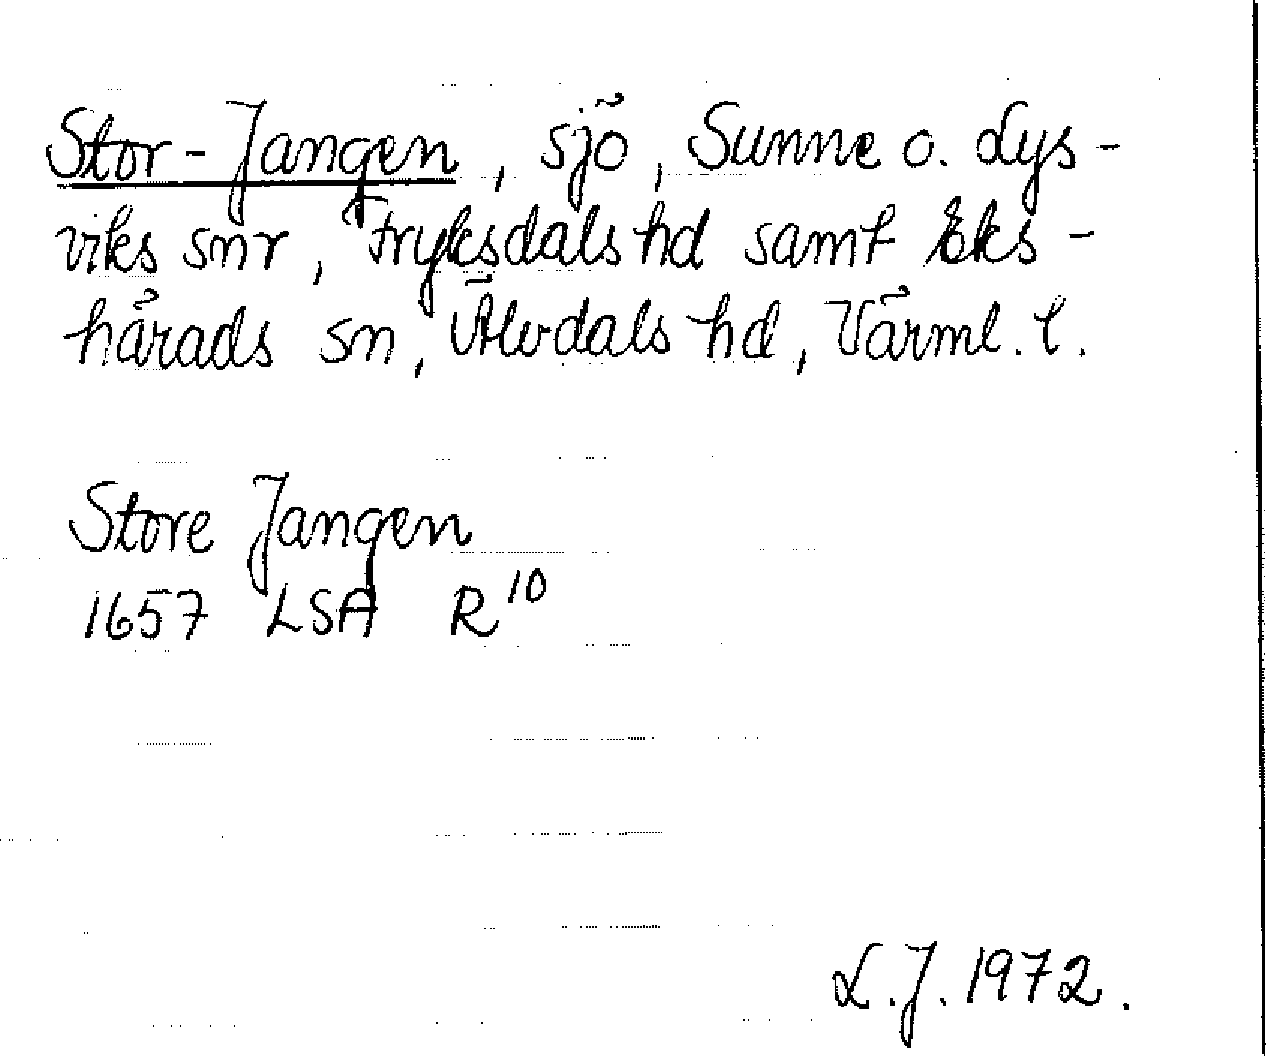 Stor-Jangen, sjö, Sunne o. Lys-
viks snr, Fryksdals hd samt Eks-
härads sn, Älvdals hd, Värml. l.
Store Jangen
1657 LSA R 10
L.J. 1972.